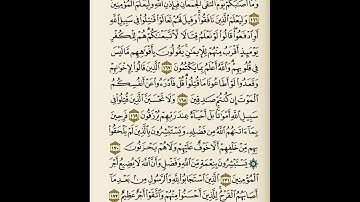 وَمَآ أَصَٰبَكُمْ يَوْمَ ٱلْتَقَى ٱلْجَمْعَانِ فَبِإِذْنِ ٱللَّهِ وَلِيَعْلَمَ ٱلْمُؤْمِنِينَ
١٦٦ وَلِيَعْلَمَ ٱلَّذِينَ نَافَقُوا۟ وَقِيلَ لَهُمْ تَعَالَوْا۟ قَٰتِلُوا۟ فِى سَبِيلِ ٱللَّهِ
أَوِ ٱدْفَعُوا۟ قَالُوا۟ لَوْ نَعْلَمُ قِتَالًا لَّٱتَّبَعْنَٰكُمْ هُمْ لِلْكُفْرِ
يَوْمَئِذٍ أَقْرَبُ مِنْهُمْ لِلْإِيمَٰنِ يَقُولُونَ بِأَفْوَٰهِهِم مَّا لَيْسَ
فِى قُلُوبِهِمْ وَٱللَّهُ أَعْلَمُ بِمَا يَكْتُمُونَ ١٦٧ ٱلَّذِينَ قَالُوا۟ لِإِخْوَٰنِهِمْ
وَقَعَدُوا۟ لَوْ أَطَاعُونَا مَا قُتِلُوا۟ قُلْ فَٱدْرَءُوا۟ عَنْ أَنفُسِكُمُ
ٱلْمَوْتَ إِن كُنتُمْ صَٰدِقِينَ ١٦٨ وَلَا تَحْسَبَنَّ ٱلَّذِينَ قُتِلُوا۟ فِى
سَبِيلِ ٱللَّهِ أَمْوَٰتًۢا بَلْ أَحْيَآءٌ عِندَ رَبِّهِمْ يُرْزَقُونَ ١٦٩ فَرِحِينَ
بِمَآ ءَاتَىٰهُمُ ٱللَّهُ مِن فَضْلِهِۦ وَيَسْتَبْشِرُونَ بِٱلَّذِينَ لَمْ يَلْحَقُوا۟
بِهِم مِّنْ خَلْفِهِمْ أَلَّا خَوْفٌ عَلَيْهِمْ وَلَا هُمْ يَحْزَنُونَ ١٧٠
۞ يَسْتَبْشِرُونَ بِنِعْمَةٍ مِّنَ ٱللَّهِ وَفَضْلٍ وَأَنَّ ٱللَّهَ لَا يُضِيعُ أَجْرَ
ٱلْمُؤْمِنِينَ ١٧١ ٱلَّذِينَ ٱسْتَجَابُوا۟ لِلَّهِ وَٱلرَّسُولِ مِنۢ بَعْدِ مَآ
أَصَابَهُمُ ٱلْقَرْحُ لِلَّذِينَ أَحْسَنُوا۟ مِنْهُمْ وَٱتَّقَوْا۟ أَجْرٌ عَظِيمٌ ١٧٢